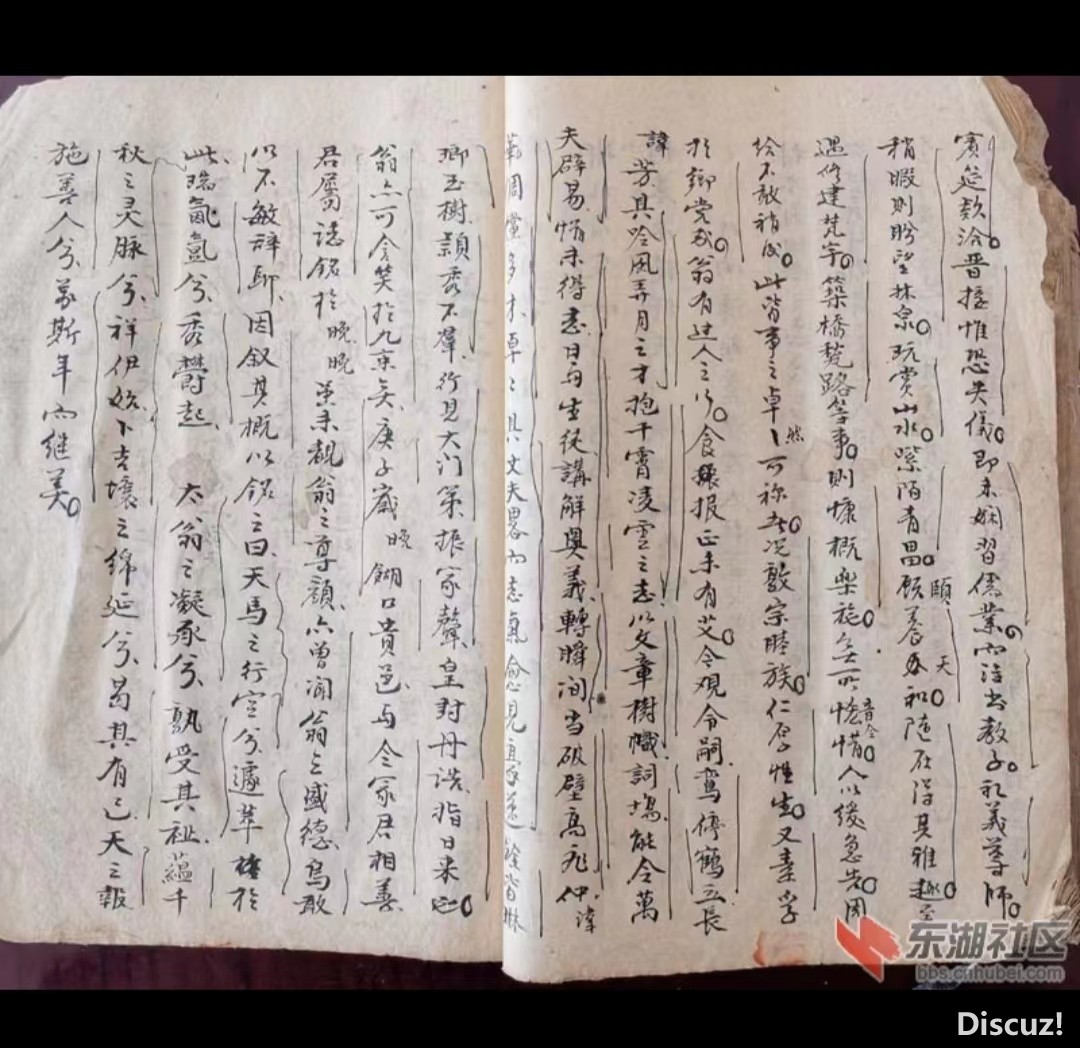 賓筵款洽晋接惟恐失儀即未嫻習儒業而注出教子礼義尊师
稍暇則盼望林泉玩赏山水紫陌青畴頤养天和随在得其雅趣至
遇修建梵宇築橋甃路等事則慷概樂施無所悋惜人以缓急告周
音仝
给不敢稍後此皆事之卓然可称者况敦宗睦族仁厚性生又素孚
於鄉党哉翁有过人之行食报正未有艾今观令嗣鸾停鶴立長
諱芳其吟風弄月之才抱干霄凌雲之志以文章樹幟詞塲能令萬
夫辟易惜未得志日与生徒講解奥義轉瞬间当破壁高飛仲諱
周黨多才卓之具丈夫畧而志氣愈見
琳
瑯玉樹頴秀不羣行見大门第振家聲皇封丹誥指日来也
翁亦可含笑於九京矣庚子嵗晚餬口貴邑与令冢君相善
君屬誌銘於晚晚虽未覩翁之尊顔亦曾闻翁之盛德烏敢
以不敏辞耶因叙其概以銘之曰天馬之行空兮遽萃於
此瑞氣氲兮秀欝起太翁之凝承兮孰受其祉藴千
秋之灵脉兮祥伊始卜吉壤之绵延兮曷其有已天之報
施善人兮萬斯年而继美
东湖社区
bbs.cnhubei.com
Discuz!